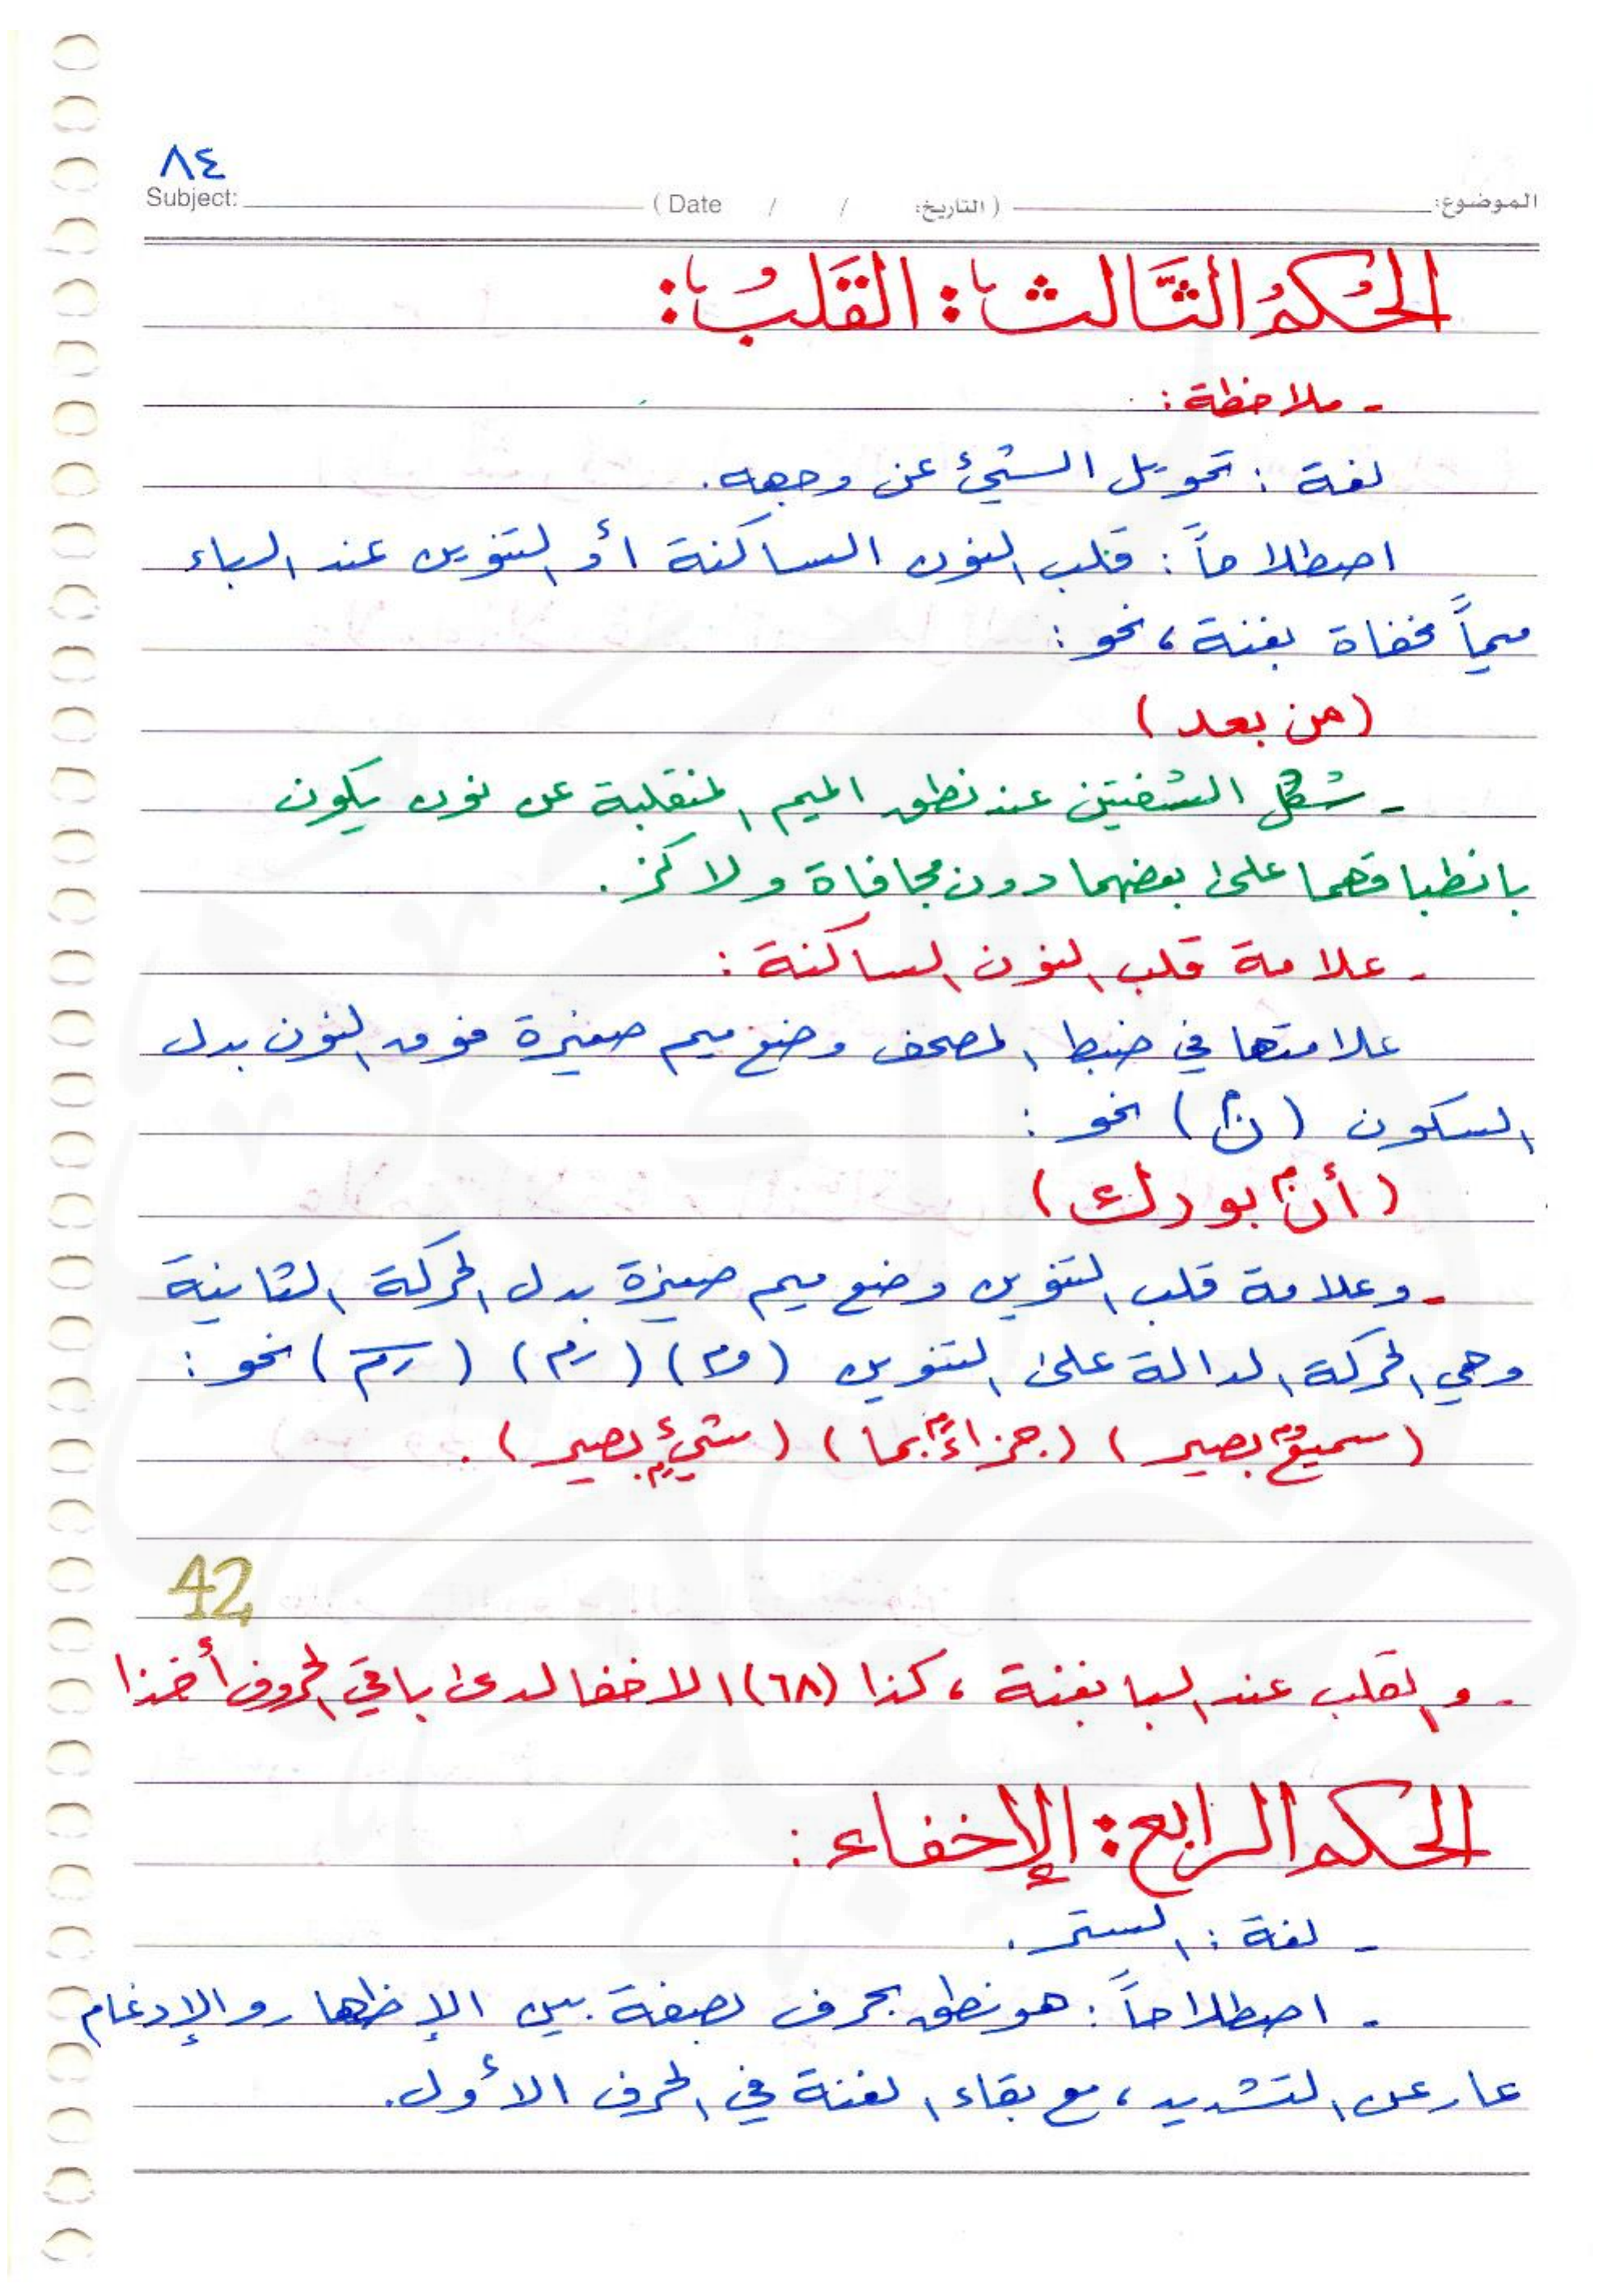 ٨٤
Subject: ( Date / / التاريخ: ) الموضوع:
الحُكمُ الثَّالث : القَلبُ :
- ملاحظة :
لغة : تحويل الشيئ عن وجهه.
اصطلاحاً : قلب النون الساكنة أو التنوين عند الباء
ميماً مخفاة بغنة ، نحو :
( من بعد )
- شكل الشفتين عند نطق الميم المنقلبة عن نون يكون
بانطباقهما على بعضهما دون مجافاة ولا كز .
- علامة قلب النون الساكنة :
علامتها في ضبط المصحف وضع ميم صغيرة فوق النون بدل
السكون ( نۢ ) نحو :
( أنۢ بورك )
- وعلامة قلب التنوين وضع ميم صغيرة بدل الحركة الثانية
وهي الحركة الدالة على التنوين نحو :
( سميعُۢ بصير ) ( جزاءَۢ بما ) ( شيءِۭ بصير ) .
42
- و القلب عند البا بغنة ، كذا (٦٨) الاخفا لدى باقي الحروف أخذا
الحكم الرابع : الإخفاء :
- لغة : الستر .
- اصطلاحاً : هو نطق بحرف بصفة بين الإظهار والإدغام
عار عن التشديد ، مع بقاء الغنة في الحرف الأول.